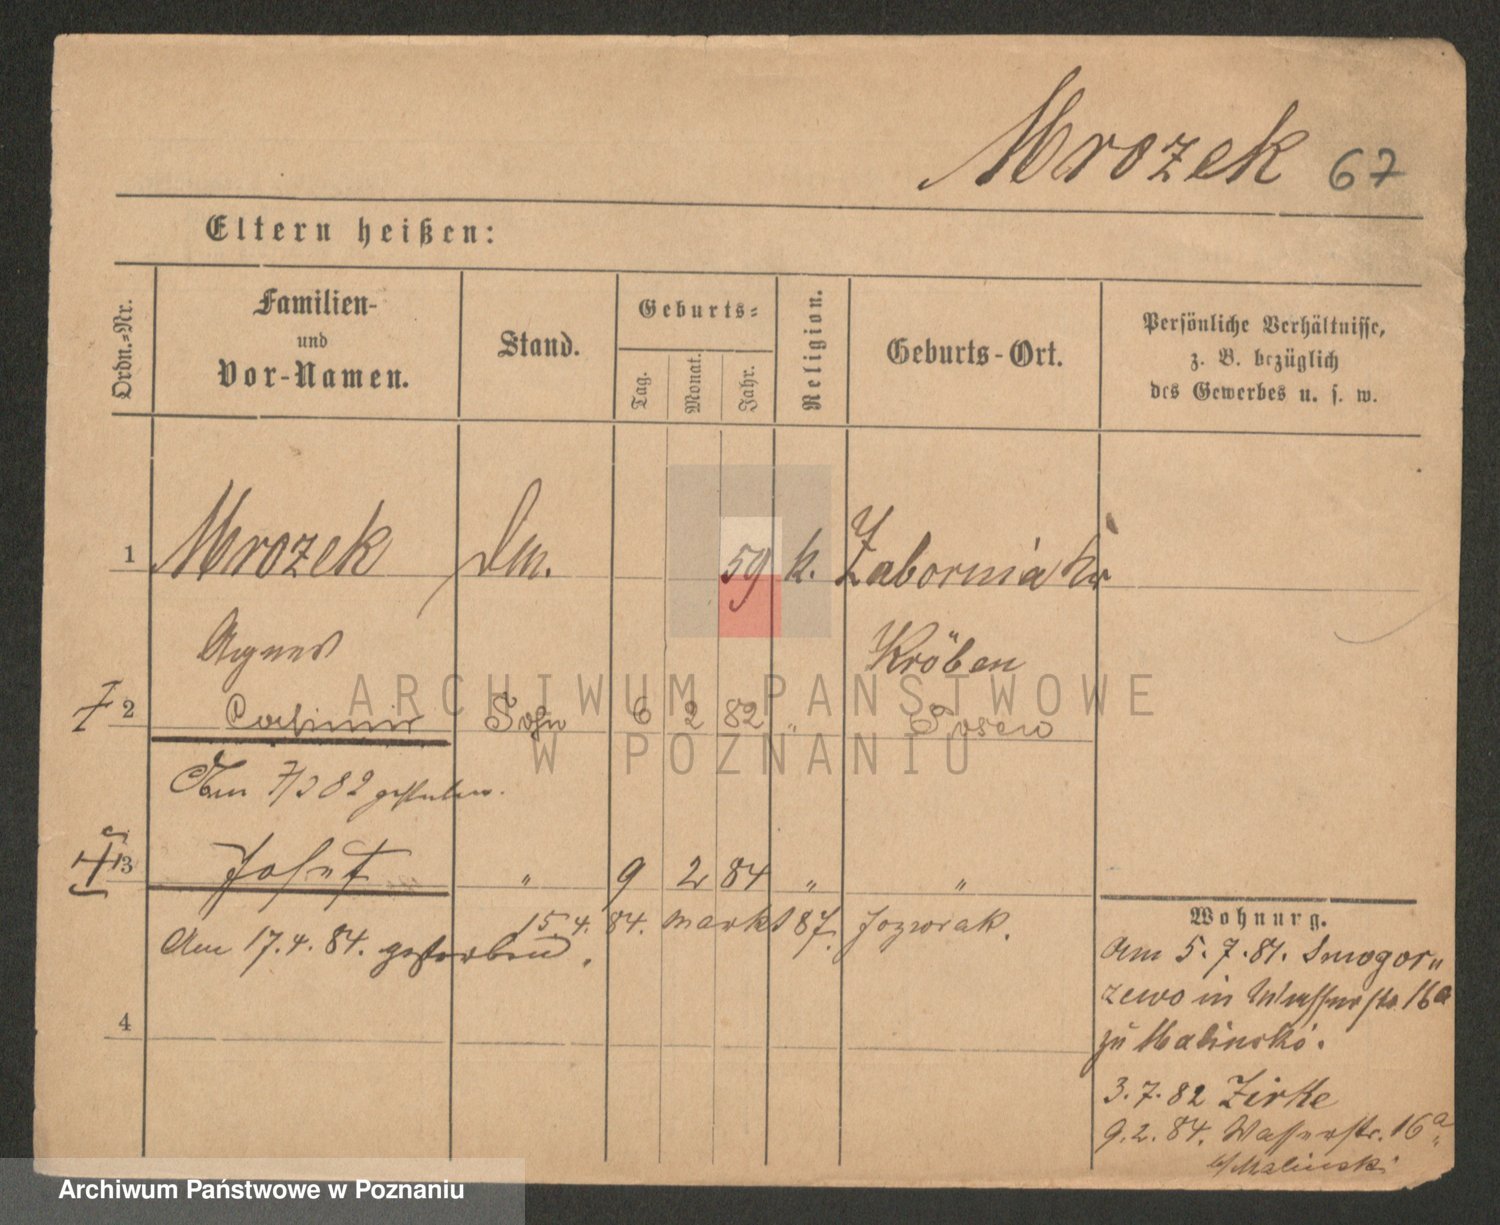 Mrozek 67
Eltern heißen:
Ordn.-Nr.
Familien-
und
Vor-Namen.
Stand.
Geburts-
Tag.
Monat.
Jahr.
Religion.
Geburts-Ort.
Persönliche Verhältnisse,
z. B. bezüglich
des Gewerbes u. s. w.
1 Mrozek Dm. 59 k. Zabornia Kr
Agnes Kröben
2 Casimir Sohn 6 2 82 " Posen
Am 7/3 82 gestorben.
3 Josef " 9 2 84 " "
15.4.84. Markt 87. Jozwiak.
Am 17.4.84. gestorben.
4
Wohnung.
Am 5.7.81. Smogor„
zewo in Wasserstr. 16a
zu Malinski.
3.7.82 Zirke
9.2.84. Wasserstr. 16a
b/Malinski
ARCHIWUM PAŃSTWOWE
W POZNANIU
Archiwum Państwowe w Poznaniu